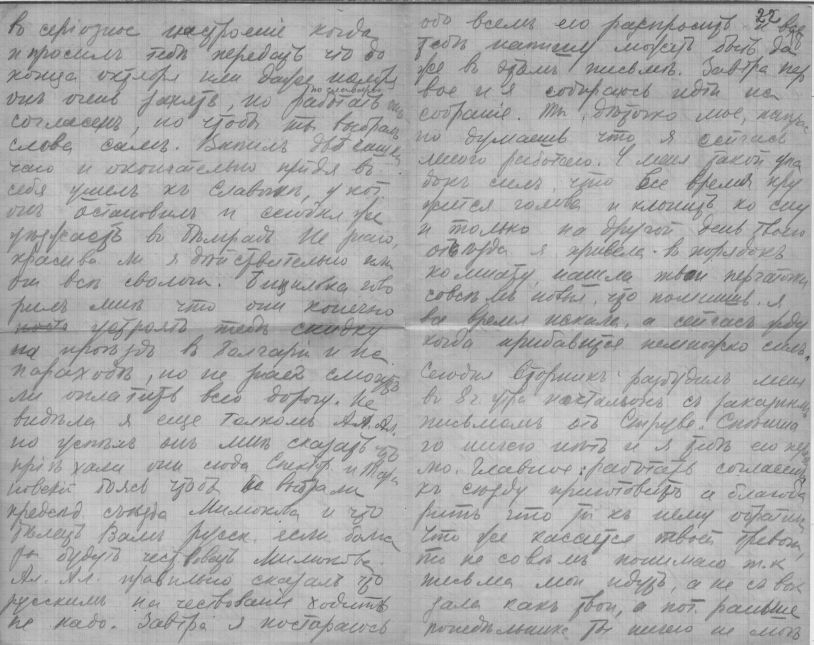 въ серіозное настроеніе когда
и просилъ тебѣ передать что до
конца октября или даже
онъ очень занятъ, но работать онъ
согласенъ, но чтобы ты выбралъ
слова самъ. Выпилъ двѣ чашки
чаю и окончательно придя въ
себя ушелъ къ Славѣ, у кот.
онъ остановился и сегодня же
уѣзжаетъ въ Бѣлградъ. Не знаю,
красива ли я дѣйствительно или
они всѣ сволочи. гово
рилъ мнѣ что они конечно
устроятъ тебѣ скидку
на проѣздъ въ Болгаріи и на
пароходѣ, но не знаетъ смогутъ
ли оплатить всю дорогу. Не
видѣла я еще толкомъ Ал. Ал.
но успѣлъ онъ мнѣ сказать что
пріѣхали они сюда и
боясь чтобъ не выбрали
предсѣд. съѣзда Милюкова и что
русск. если
будутъ чествовать Милюкова.
Ал. Ал. правильно сказалъ что
русскимъ на чествованіе ходить
не надо. Завтра я постараюсь
22
обо всемъ его разспросить и
тебѣ напишу можетъ быть да
же въ этомъ письмѣ. Завтра пер
вое и я собираюсь идти на
собраніе. Ты, дѣточка моя,
но думаешь что я сейчасъ
много работаю. У меня такой упа
докъ силъ, что все время кру
жится голова и клонитъ ко сну
и только на другой день твоего
отъѣзда я привела въ порядокъ
комнату, нашла твои перчатки
совсѣмъ новыя, что помнишь я
все время искала, а сейчасъ
когда прибавится немножко силъ.
Сегодня вторникъ разбудилъ меня
въ 8 ч. утра почтальонъ съ заказнымъ
письмомъ отъ Струве.
го ничего нѣтъ и я тебѣ его
Главное: работать согласенъ
къ съѣзду приготовить и благода
ритъ что ты къ нему обратился
Что же касается твоей тревоги,
то не совсѣмъ понимаю т.к.
письма мои идутъ, а не съ вок
зала какъ твои, а пот. раньше
понедѣльника ты ничего не могъ